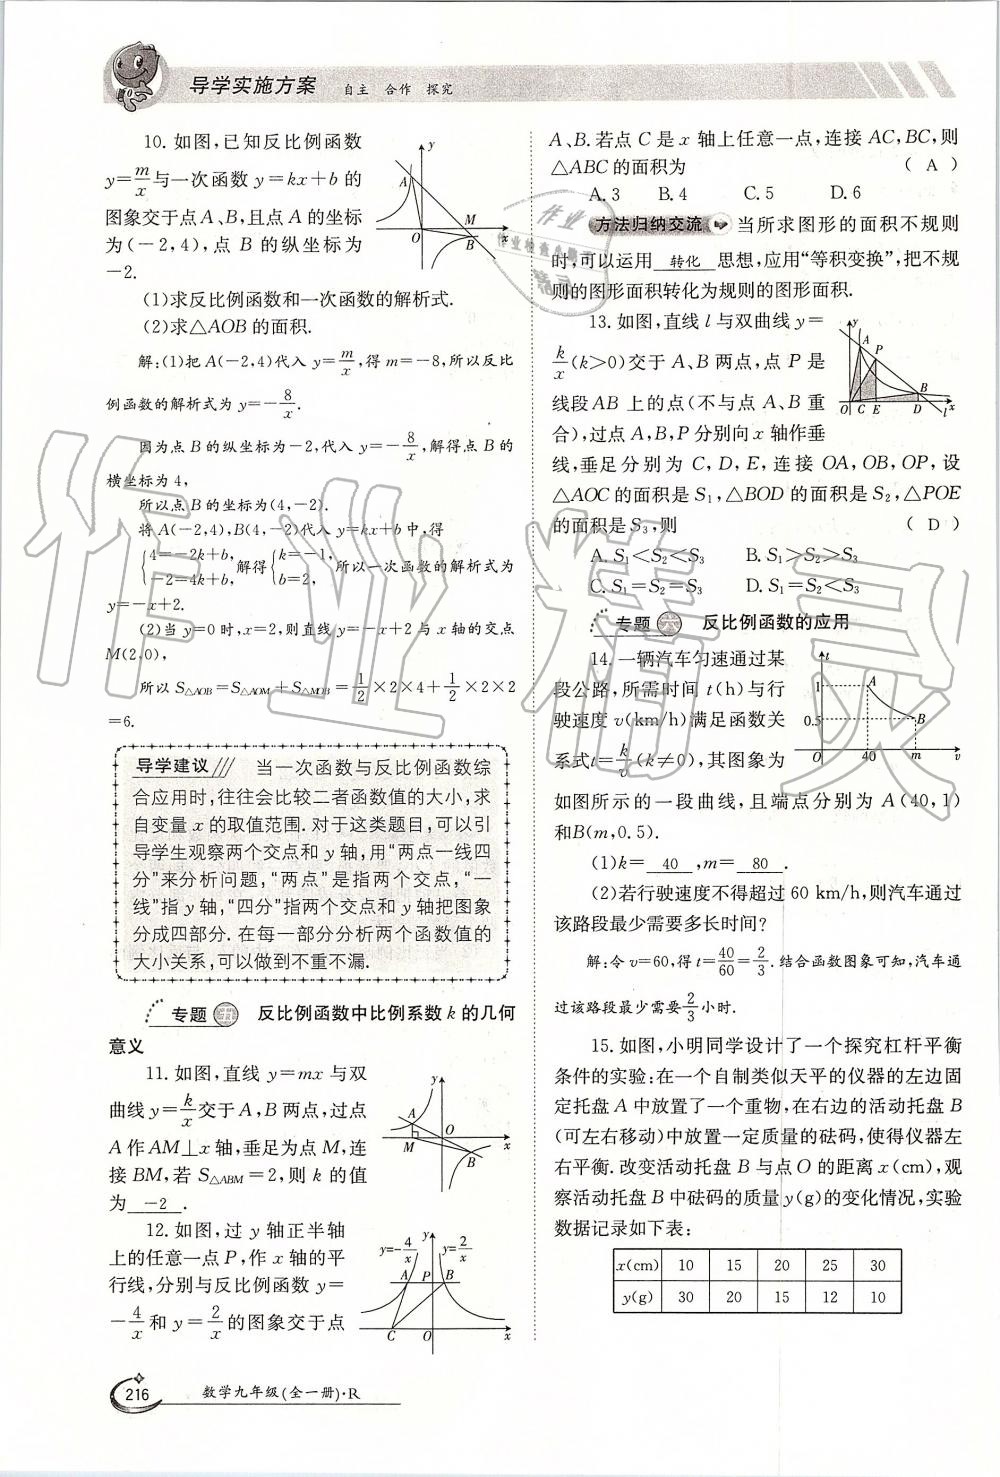 导学实施方案 自主 合作 探究
10. 如图,已知反比例函数
y=m/x与一次函数 y=kx+b 的
图象交于点A、B,且点 A 的坐标
为(-2,4),点 B 的纵坐标为
-2.
(1)求反比例函数和一次函数的解析式.
(2)求△AOB的面积.
解:(1)把A(-2,4)代入 y=m/x,得 m=-8,所以反比
例函数的解析式为 y=-8/x.
因为点 B 的纵坐标为-2,代入 y=-8/x,解得点 B 的
横坐标为 4,
所以点 B 的坐标为(4,-2).
将 A(-2,4),B(4,-2)代入 y=kx+b 中,得
{4=-2k+b, -2=4k+b, 解得{k=-1, b=2, 所以一次函数的解析式为
y=-x+2.
(2)当 y=0 时,x=2,则直线 y=-x+2 与 x 轴的交点
M(2,0),
所以 S△AOB=S△AOM+S△MOB=1/2×2×4+1/2×2×2
=6.
y A M O B x
导学建议 当一次函数与反比例函数综
合应用时,往往会比较二者函数值的大小,求
自变量 x 的取值范围. 对于这类题目,可以引
导学生观察两个交点和 y 轴,用“两点一线四
分”来分析问题,“两点”是指两个交点,“一
线”指 y 轴,“四分”指两个交点和 y 轴把图象
分成四部分. 在每一部分分析两个函数值的
大小关系,可以做到不重不漏.
专题 五 反比例函数中比例系数 k 的几何
意义
11. 如图,直线 y=mx 与双
曲线 y=k/x交于 A,B 两点,过点
A 作 AM⊥x 轴,垂足为点 M,连
接 BM,若 S△ABM=2,则 k 的值
为 -2 .
y A O M B x
12. 如图,过 y 轴正半轴
上的任意一点 P,作 x 轴的平
行线,分别与反比例函数 y=
-4/x和 y=2/x的图象交于点
y=-4/x y y=2/x A P B C O x
A、B. 若点 C 是 x 轴上任意一点,连接 AC,BC,则
△ABC 的面积为 ( A )
A. 3 B. 4 C. 5 D. 6
方法归纳交流 当所求图形的面积不规则
时,可以运用 转化 思想,应用“等积变换”,把不规
则的图形面积转化为规则的图形面积.
13. 如图,直线 l 与双曲线 y=
k/x(k>0)交于 A、B 两点,点 P 是
线段AB 上的点(不与点 A、B 重
合),过点 A,B,P 分别向 x 轴作垂
线,垂足分别为 C,D,E,连接 OA,OB,OP,设
△AOC 的面积是 S1,△BOD 的面积是 S2,△POE
的面积是 S3,则 ( D )
A. S1<S2<S3 B. S1>S2>S3
C. S1=S2=S3 D. S1=S2<S3
y A P B O C E D l x
专题 六 反比例函数的应用
14. 一辆汽车匀速通过某
段公路,所需时间 t(h)与行
驶速度 v(km/h)满足函数关
系式t=k/v(k≠0),其图象为
如图所示的一段曲线,且端点分别为 A(40,1)
和B(m,0.5).
t 1 A 0.5 B O 40 m v
(1)k= 40 ,m= 80 .
(2)若行驶速度不得超过 60 km/h,则汽车通过
该路段最少需要多长时间?
解:令 v=60,得 t=40/60=2/3. 结合函数图象可知,汽车通
过该路段最少需要2/3小时.
15. 如图,小明同学设计了一个探究杠杆平衡
条件的实验:在一个自制类似天平的仪器的左边固
定托盘 A 中放置了一个重物,在右边的活动托盘 B
(可左右移动)中放置一定质量的砝码,使得仪器左
右平衡. 改变活动托盘 B 与点 O 的距离 x(cm),观
察活动托盘 B 中砝码的质量 y(g)的变化情况,实验
数据记录如下表:
x(cm) 10 15 20 25 30
y(g) 30 20 15 12 10
216 数学九年级(全一册)·R
作业精灵